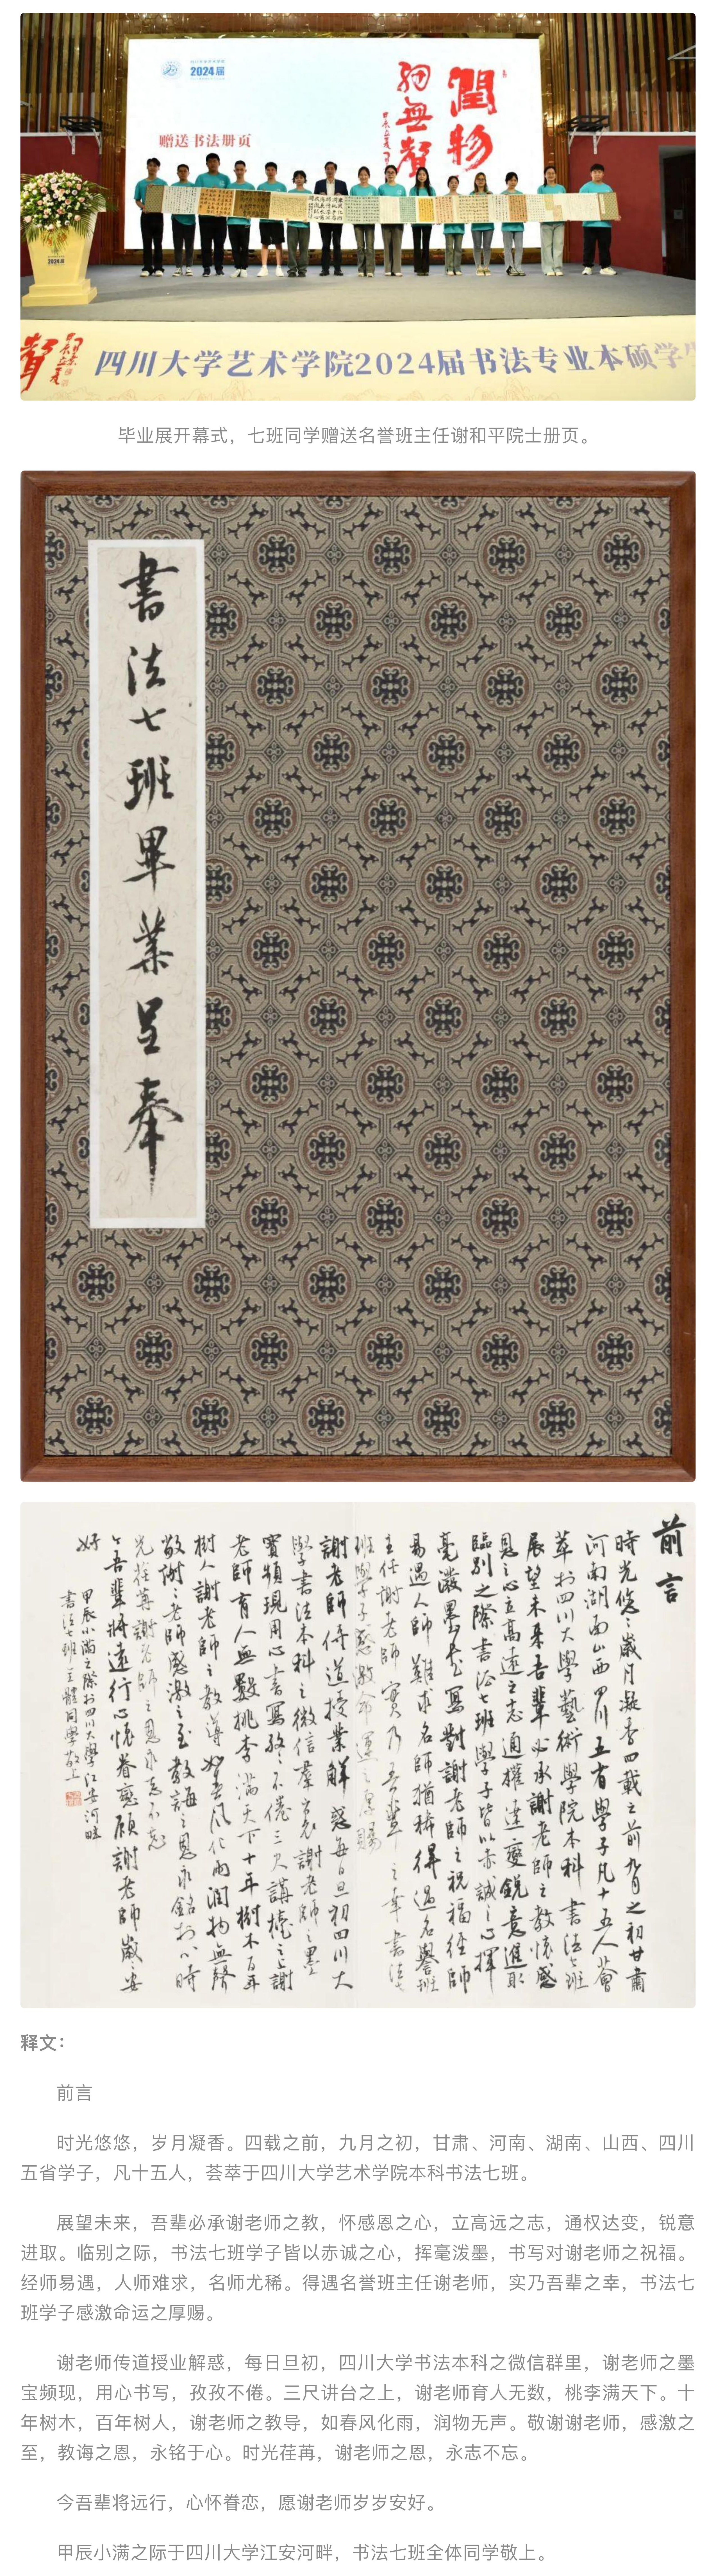 2024届
润物
细無聲
赠送书法册页
2024届
四川大学艺术学院2024届书法专业本硕学
毕业展开幕式，七班同学赠送名誉班主任谢和平院士册页。
書法七班畢業呈奉
前言
時光悠々歲月凝香四載之前九月之初甘肅
河南湖南山西四川五省學子凡十五人薈
萃於四川大學藝術學院本科書法七班
展望未來吾輩必承謝老師之教懷感
恩之心立高遠之志通權達變銳意進取
臨別之際書法七班學子皆以赤誠之心揮
毫潑墨書寫對謝老師之祝福經師
易遇人師難求名師猶稀得遇名譽班
主任謝老師實乃吾輩之幸書法七
班學子感激命運之厚賜
謝老師傳道授業解惑每日旦初四川大
學書法本科之微信羣裏謝老師之墨
寶頻現用心書寫孜々不倦三尺講檯之上謝
老師育人無數桃李滿天下十年樹木百年
樹人謝老師之教導如春風化雨潤物無聲
敬謝謝老師感激之至教誨之恩永銘於心時
光荏苒謝老師之恩永志不忘
今吾輩將遠行心懷眷戀願謝老師歲々安
好
甲辰小滿之際於四川大學江安河畔
書法七班全體同學敬上
释文：
前言
时光悠悠，岁月凝香。四载之前，九月之初，甘肃、河南、湖南、山西、四川
五省学子，凡十五人，荟萃于四川大学艺术学院本科书法七班。
展望未来，吾辈必承谢老师之教，怀感恩之心，立高远之志，通权达变，锐意
进取。临别之际，书法七班学子皆以赤诚之心，挥毫泼墨，书写对谢老师之祝福。
经师易遇，人师难求，名师尤稀。得遇名誉班主任谢老师，实乃吾辈之幸，书法七
班学子感激命运之厚赐。
谢老师传道授业解惑，每日旦初，四川大学书法本科之微信群里，谢老师之墨
宝频现，用心书写，孜孜不倦。三尺讲台之上，谢老师育人无数，桃李满天下。十
年树木，百年树人，谢老师之教导，如春风化雨，润物无声。敬谢谢老师，感激之
至，教诲之恩，永铭于心。时光荏苒，谢老师之恩，永志不忘。
今吾辈将远行，心怀眷恋，愿谢老师岁岁安好。
甲辰小满之际于四川大学江安河畔，书法七班全体同学敬上。